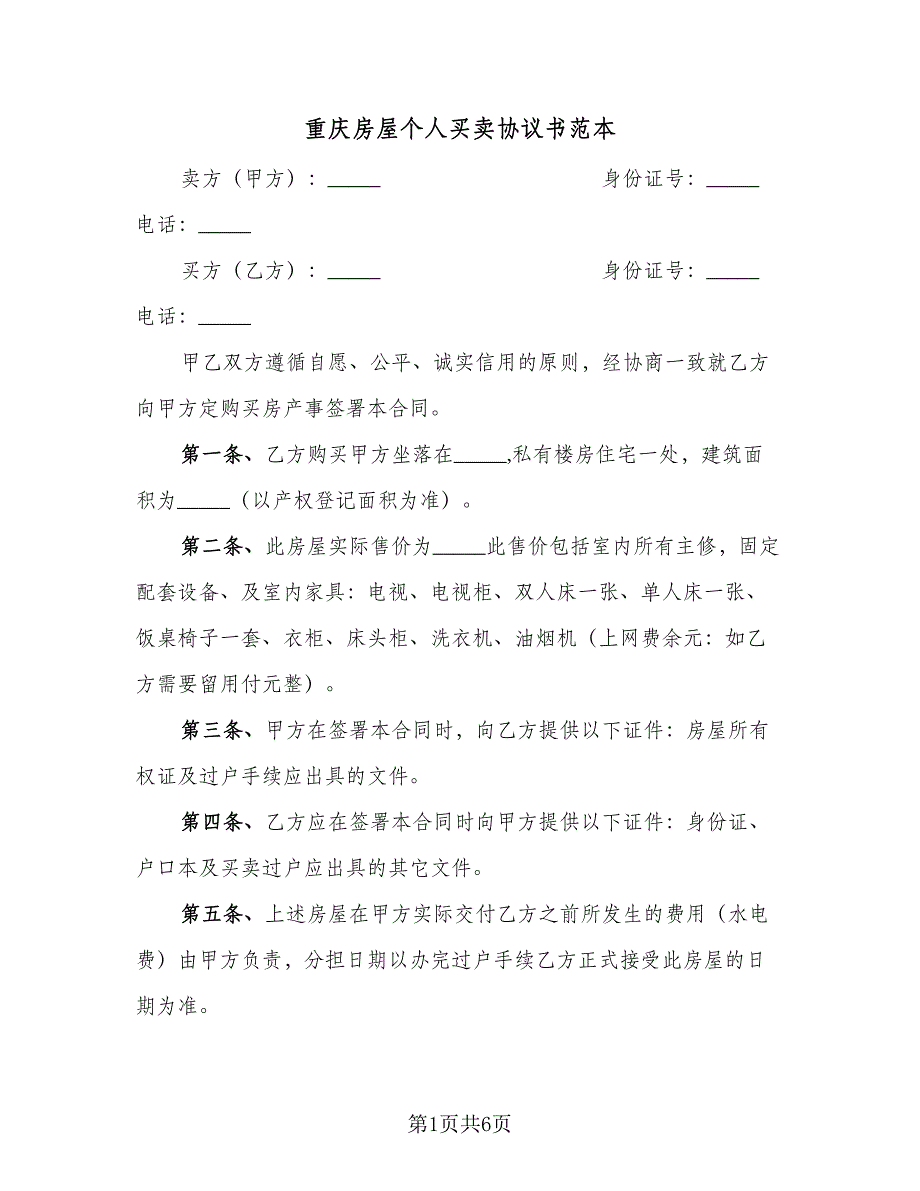 重庆房屋个人买卖协议书范本
卖方（甲方）：_____ 身份证号：_____
电话：_____
买方（乙方）：_____ 身份证号：_____
电话：_____
甲乙双方遵循自愿、公平、诚实信用的原则，经协商一致就乙方
向甲方定购买房产事签署本合同。
第一条、乙方购买甲方坐落在_____,私有楼房住宅一处，建筑面
积为_____（以产权登记面积为准）。
第二条、此房屋实际售价为_____此售价包括室内所有主修，固定
配套设备、及室内家具：电视、电视柜、双人床一张、单人床一张、
饭桌椅子一套、衣柜、床头柜、洗衣机、油烟机（上网费余元：如乙
方需要留用付元整）。
第三条、甲方在签署本合同时，向乙方提供以下证件：房屋所有
权证及过户手续应出具的文件。
第四条、乙方应在签署本合同时向甲方提供以下证件：身份证、
户口本及买卖过户应出具的其它文件。
第五条、上述房屋在甲方实际交付乙方之前所发生的费用（水电
费）由甲方负责，分担日期以办完过户手续乙方正式接受此房屋的日
期为准。
第1页共6页